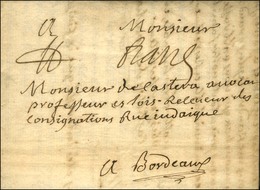 a Monsieur
franc
Monsieur de Castera avocat
professeur es lois Receveur des
Consignations Rue iudaique
a Bordeaux